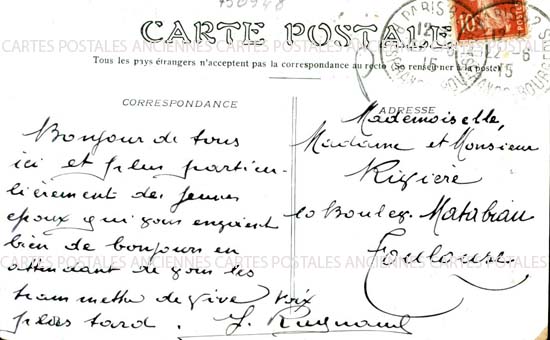 150948
CARTE POSTALE
Tous les pays étrangers n'acceptent pas la correspondance au recto (Se renseigner à la poste)
CORRESPONDANCE
Bonjour de tous
ici et plus particu-
lièrement des jeunes
époux qui vous envoient
bien de bonjours en
attendant de vous les
transmettre de vive voix
plus tard.
ADRESSE
Mademoiselle,
Madame et Monsieur
Rivière
Boulev. Matabiau
Toulouse
PARIS
12
10
CARTES POSTALES ANCIENNES CARTES POSTALES ANCIENNES CARTES POSTALES ANCIENNES